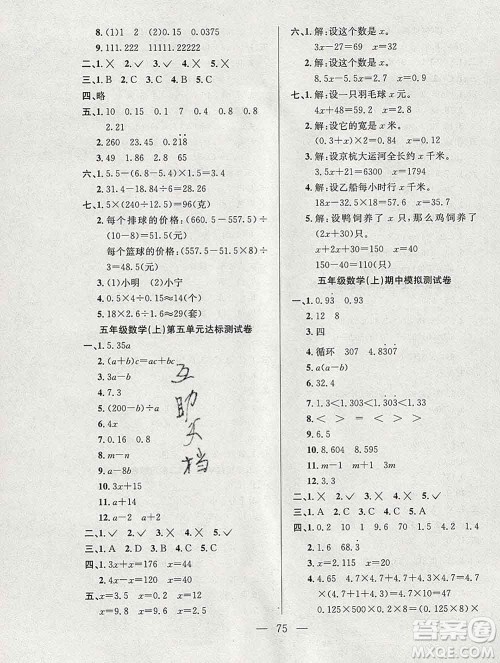 8. (1)1 2 (2)0.15 0.0375
9. 11.222 22.222
二、1. ✓ 2. × 3. × 4. ✓ 5. ×
三、1. C 2. B 3. C 4. A 5. C
四、略
五、1. 10 0.15 0.1 7 0.4 8 0.2
2.21
2. 260 23.45 0.28
3. 49 8.86 2.5
六、1. 5.5-(6.8-5.5)=4.2
2. 31.4-18.6÷12=29.85
七、1. 5×(240÷12.5)=96(克)
2. 每个排球的价格:(660.5-557.5)÷
(10-8)=51.5(元)
每个篮球的价格:(557.5-51.5×8)÷
3=48.5(元)
3. (1)小明 (2)小宁
4. 0.5×4÷1.25=1.6(元)
5. 18×2÷1.6=22.5(m)
五年级数学(上)第五单元达标测试卷
一、1. 5.35a
2. (a+b)c=ac+bc
3. a-b
4. 7.3
5. (200-b)÷a
6. 4x
7. 0.16 0.8
8. m-n
9. a-8b
10. 3x+15
11. a+14
12. a-2 a+2
二、1. ✓ 2. × 3. × 4. × 5. ✓
三、1. A 2. D 3. C 4. A 5. D
四、1. 3x+x=960 x=240
2. 5x-4x=0.9 x=0.9
五、x=5.6 x=12 x=4
x=9.8 x=2.5 x=9.6
互助文档
六、1. 解:设这个数是x。
3x-27=69 x=32
2. 解:设这个数是x。
8.5x-5x=2.8 x=0.8
七、1. 解:设一只羽毛球x元。
4x+48=57.6 x=2.4
2. 解:设它的宽是x米。
(0.3+x)×2=2 x=0.7
3. 解:设京杭大运河全长约x千米。
3.5x=6300 x=1800
4. 解:设乙船每小时行x千米。
18x-15x=57.6 x=19.2
5. 解:设鸭饲养了x只,那么鸡饲养了
(2x+30)只。
x+2x+30=150 x=40
150-40=110(只)
五年级数学(上)期中模拟测试卷
一、1. 0.93 0.93
2. 10
3. 四
4. 循环 307 4.8307
5. a(a-b)
6. 2.7
7. 1.3<1.33<1.3<1.38
8. < > = < > <
9. 5.0
10. 8.604 8.60
11. m+1 m-1
12. 4
二、1. × 2. × 3. ✓ 4. ✓ 5. ✓
三、1. B 2. A 3. C 4. C 5. B
四、1. 0.82 10 2.9 1 10 2.1 0.05
70 0.9
2. 1.86 68.3
3. 15 4
4. 7.5×4.8+7.5×5.2=75
0.125×500×0.8=(0.125×8)×
75